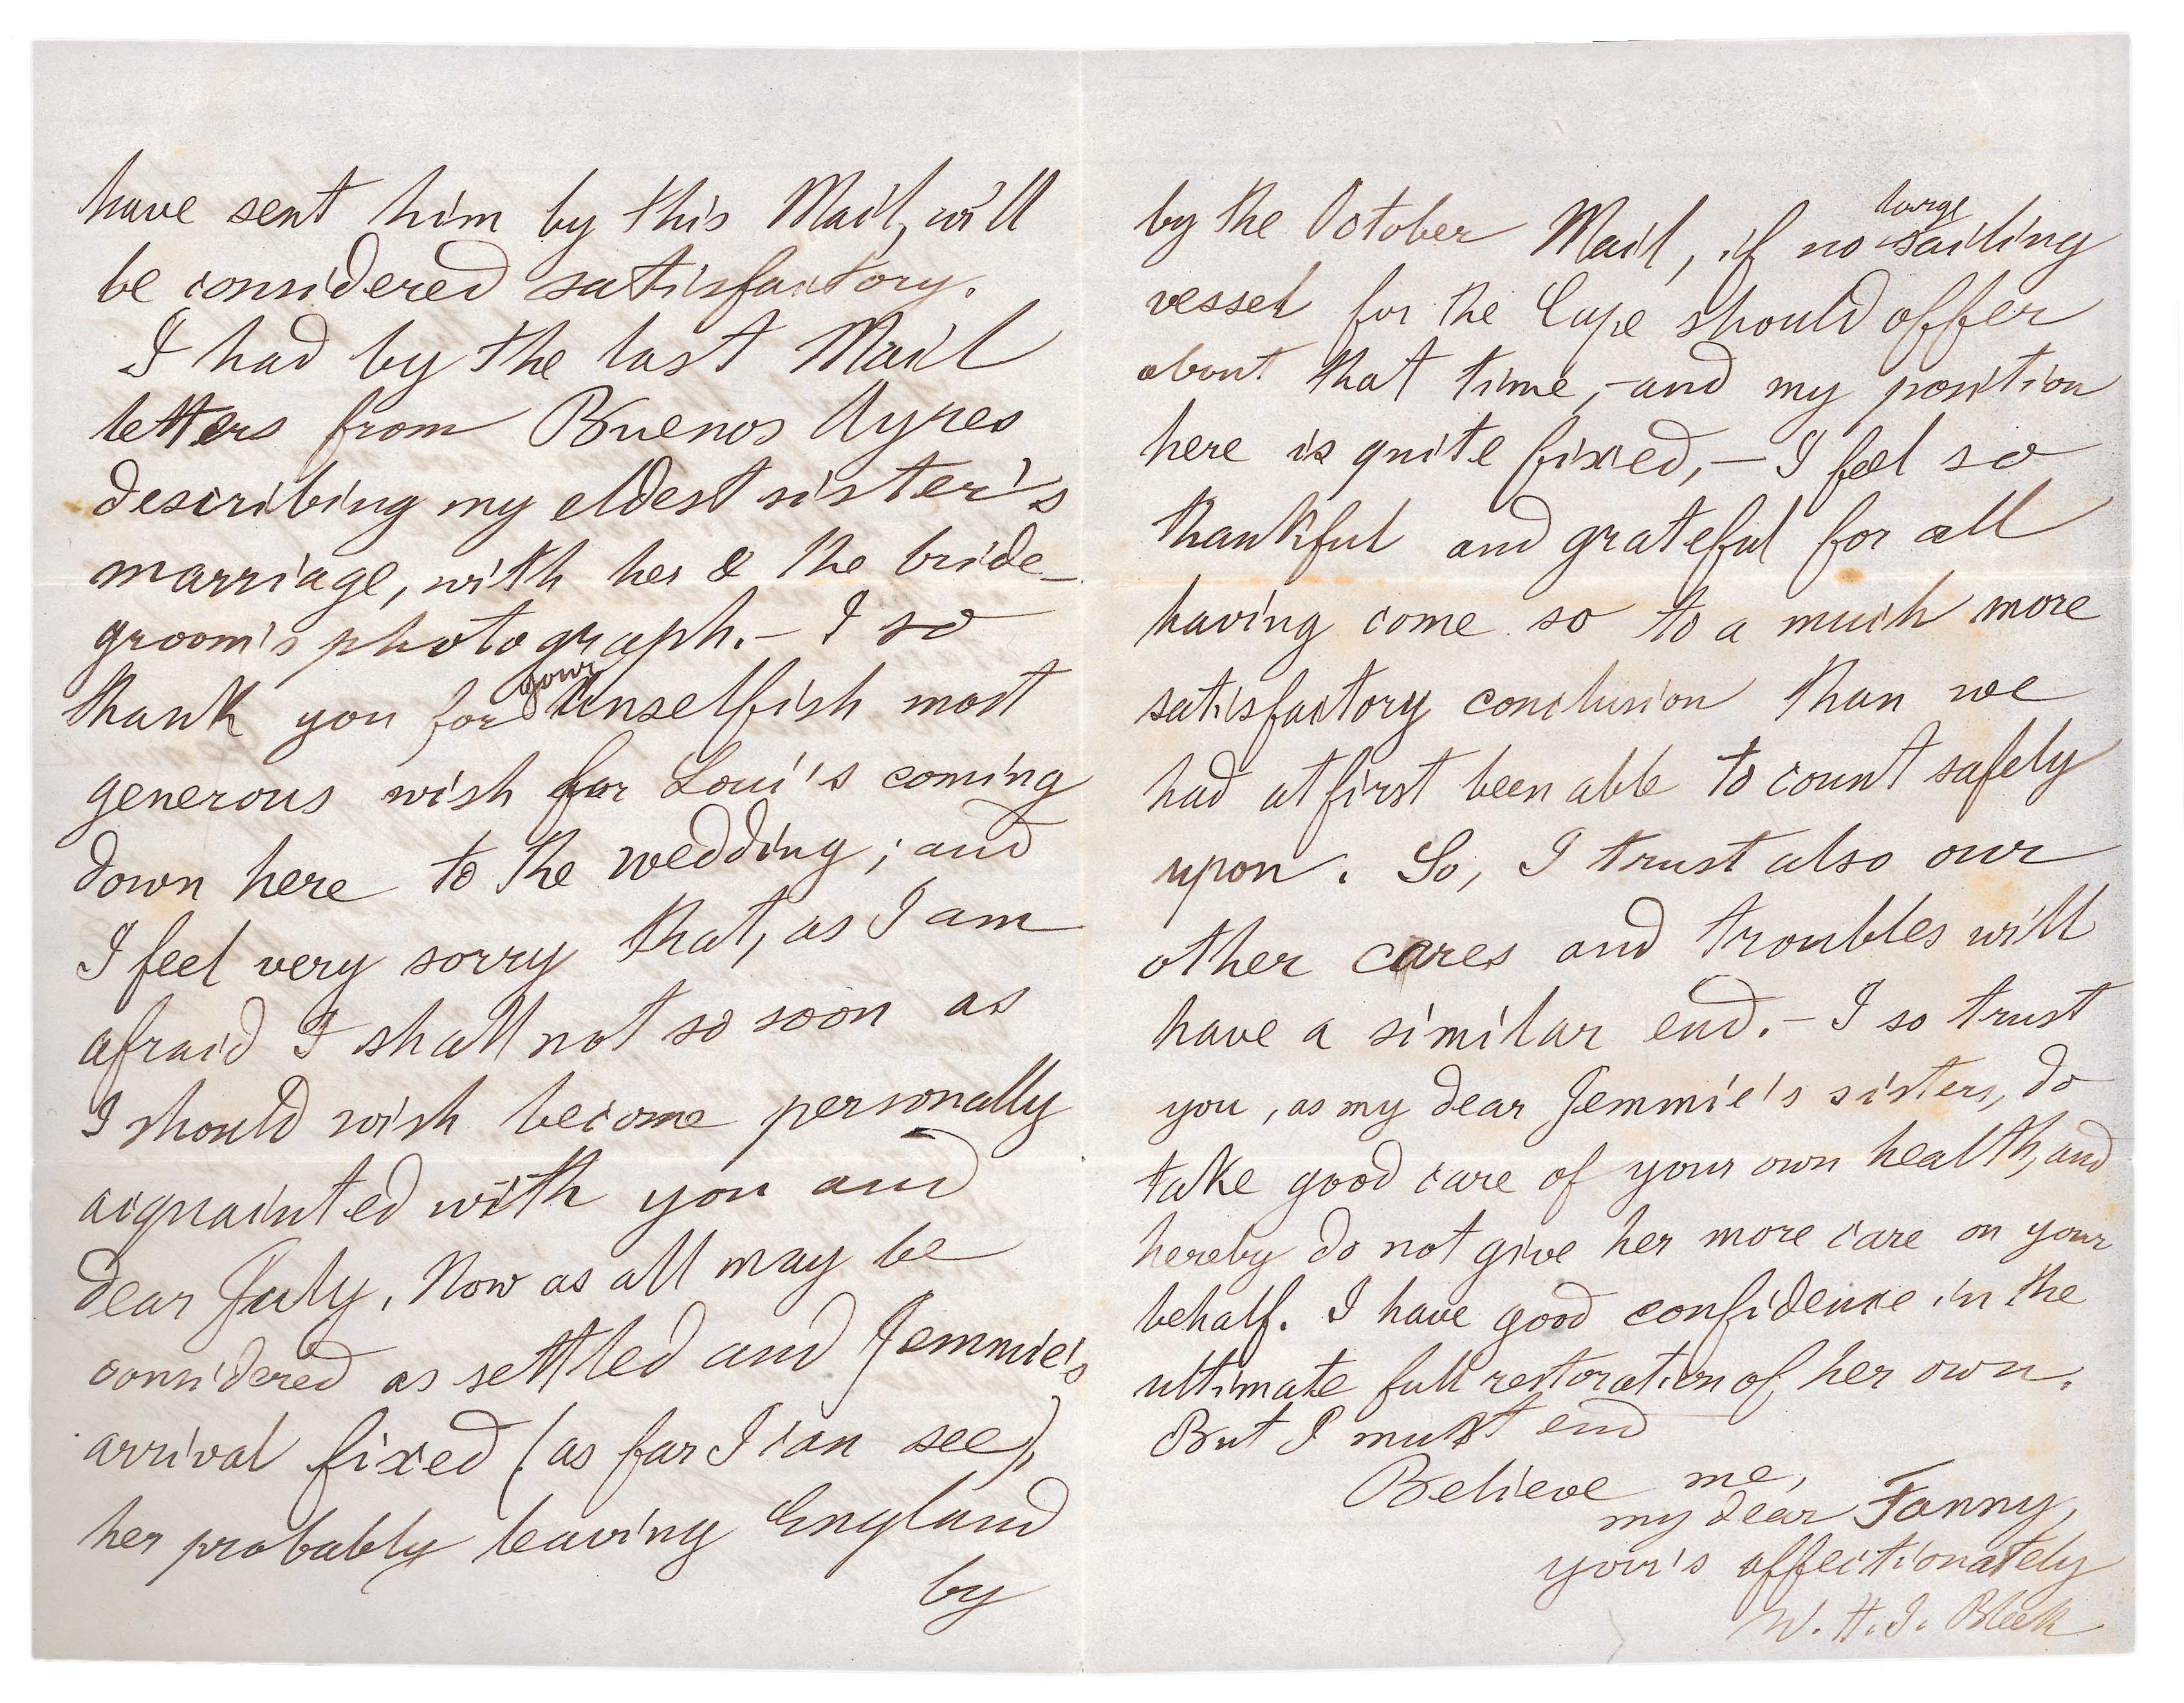 have sent him by this Mail, will
be considered satisfactory.
I had by the last Mail
letters from Buenos Ayres
describing my eldest sister's
marriage, with her & the bride-
groom's photograph. - I so
thank you for your unselfish most
generous wish for Loui's coming
down here to the wedding; and
I feel very sorry that, as I am
afraid I shall not so soon as
I should wish become personally
acquainted with you and
dear July. Now as all may be
considered as settled and Jemmie's
arrival fixed (as far I can see),
her probably leaving England
by
by the October Mail, if no large sailing
vessel for the Cape should offer
about that time, - and my position
here is quite fixed, - I feel so
thankful and grateful for all
having come so to a much more
satisfactory conclusion than we
had at first been able to count safely
upon. So, I trust also our
other cares and troubles will
have a similar end. - I so trust
you, as my dear Jemmie's sisters, do
take good care of your own health, and
hereby do not give her more care on your
behalf. I have good confidence in the
ultimate full restoration of her own.
But I must end
Believe me,
my dear Fanny,
your's affectionately
W. H. I. Bleek